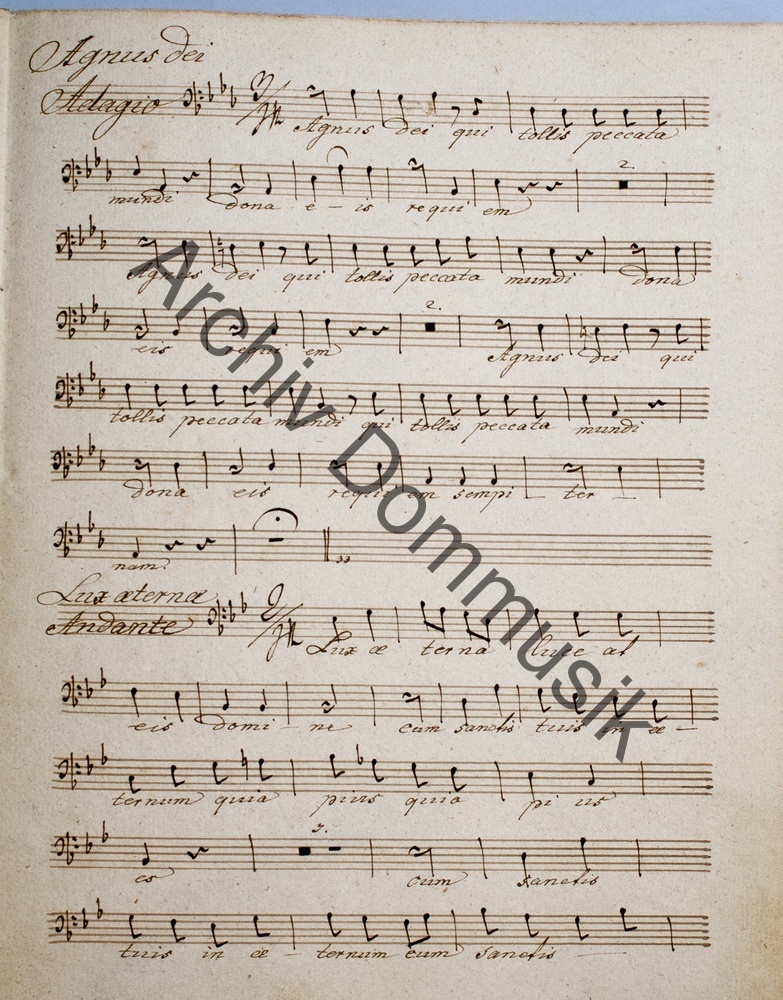 Agnus dei
Adagio 3/4
Agnus dei qui tollis peccata
2.
mundi dona e - is requi em
Agnus dei qui tollis peccata mundi dona
2.
eis requi em Agnus dei qui
tollis peccata mundi qui tollis peccata mundi
dona eis requi em sempi - ter -
nam.
Lux æterna
Andante 2/4
Lux æ terna luce at
eis domi - ne cum sanctis tuis in æ -
ternum quia pius quia pi us
3.
es cum sanctis
tuis in æ - ternum cum sanctis -
Archiv Dommusik